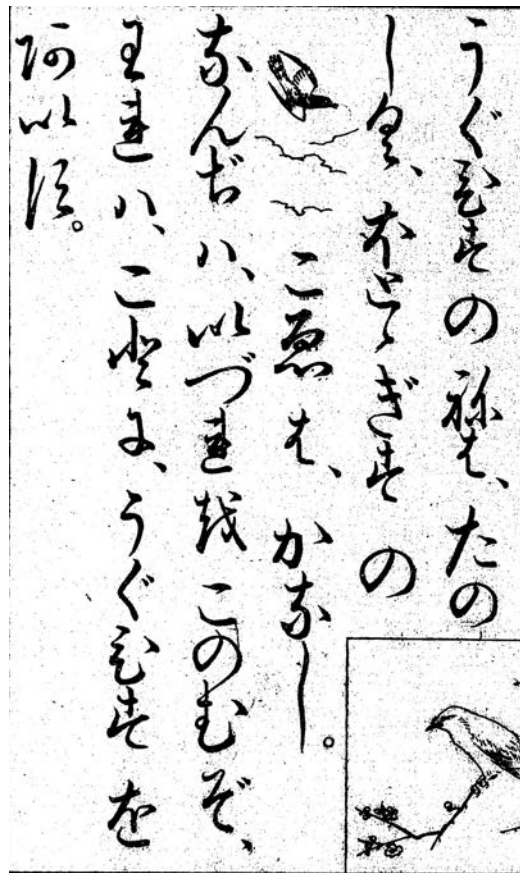 うぐひすの ねは、たの
しく、ほとゝぎすの
こゑは、かなし。
なんぢハ、いづれを このむぞ、
われハ、ことに、うぐひすを
あいす。